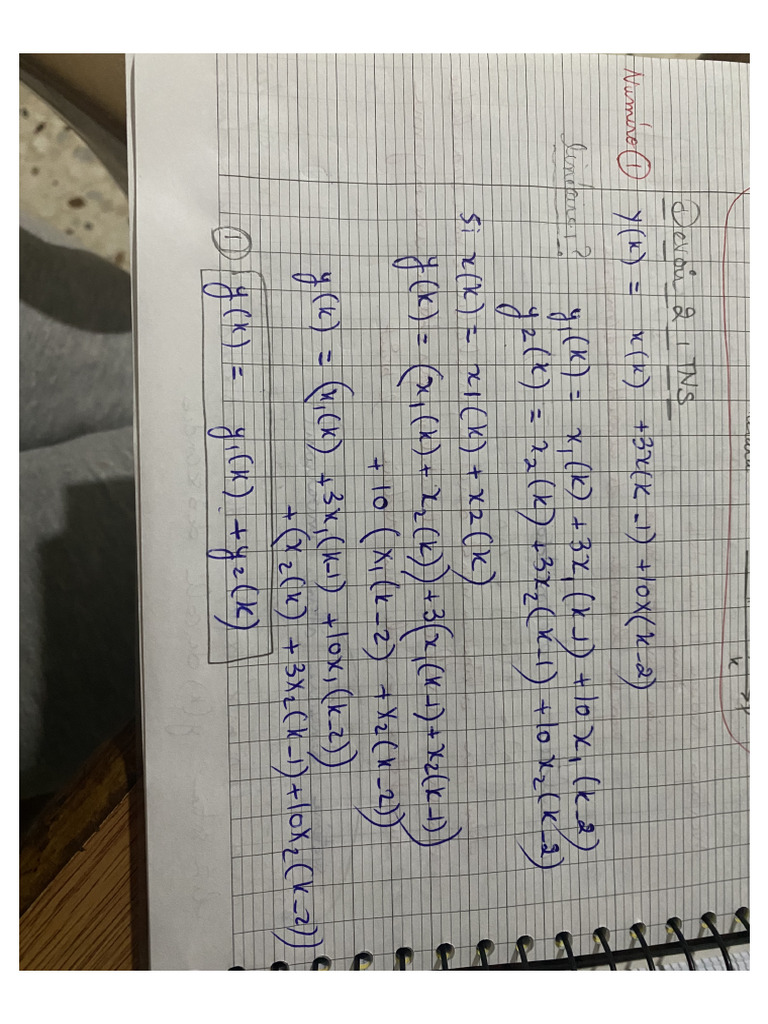 Devoir 2 TNS
Numéro ①
y(k) = x(k) + 3x(k-1) + 10x(k-2)
linéaire?
y₁(k) = x₁(k) + 3x₁(k-1) + 10x₁(k-2)
y₂(k) = x₂(k) + 3x₂(k-1) + 10x₂(k-2)
Si x(k) = x₁(k) + x₂(k)
y(k) = (x₁(k) + x₂(k)) + 3(x₁(k-1) + x₂(k-1))
+ 10(x₁(k-2) + x₂(k-2))
y(k) = (x₁(k) + 3x₁(k-1) + 10x₁(k-2))
+ (x₂(k) + 3x₂(k-1) + 10x₂(k-2))
① y(k) = y₁(k) + y₂(k)